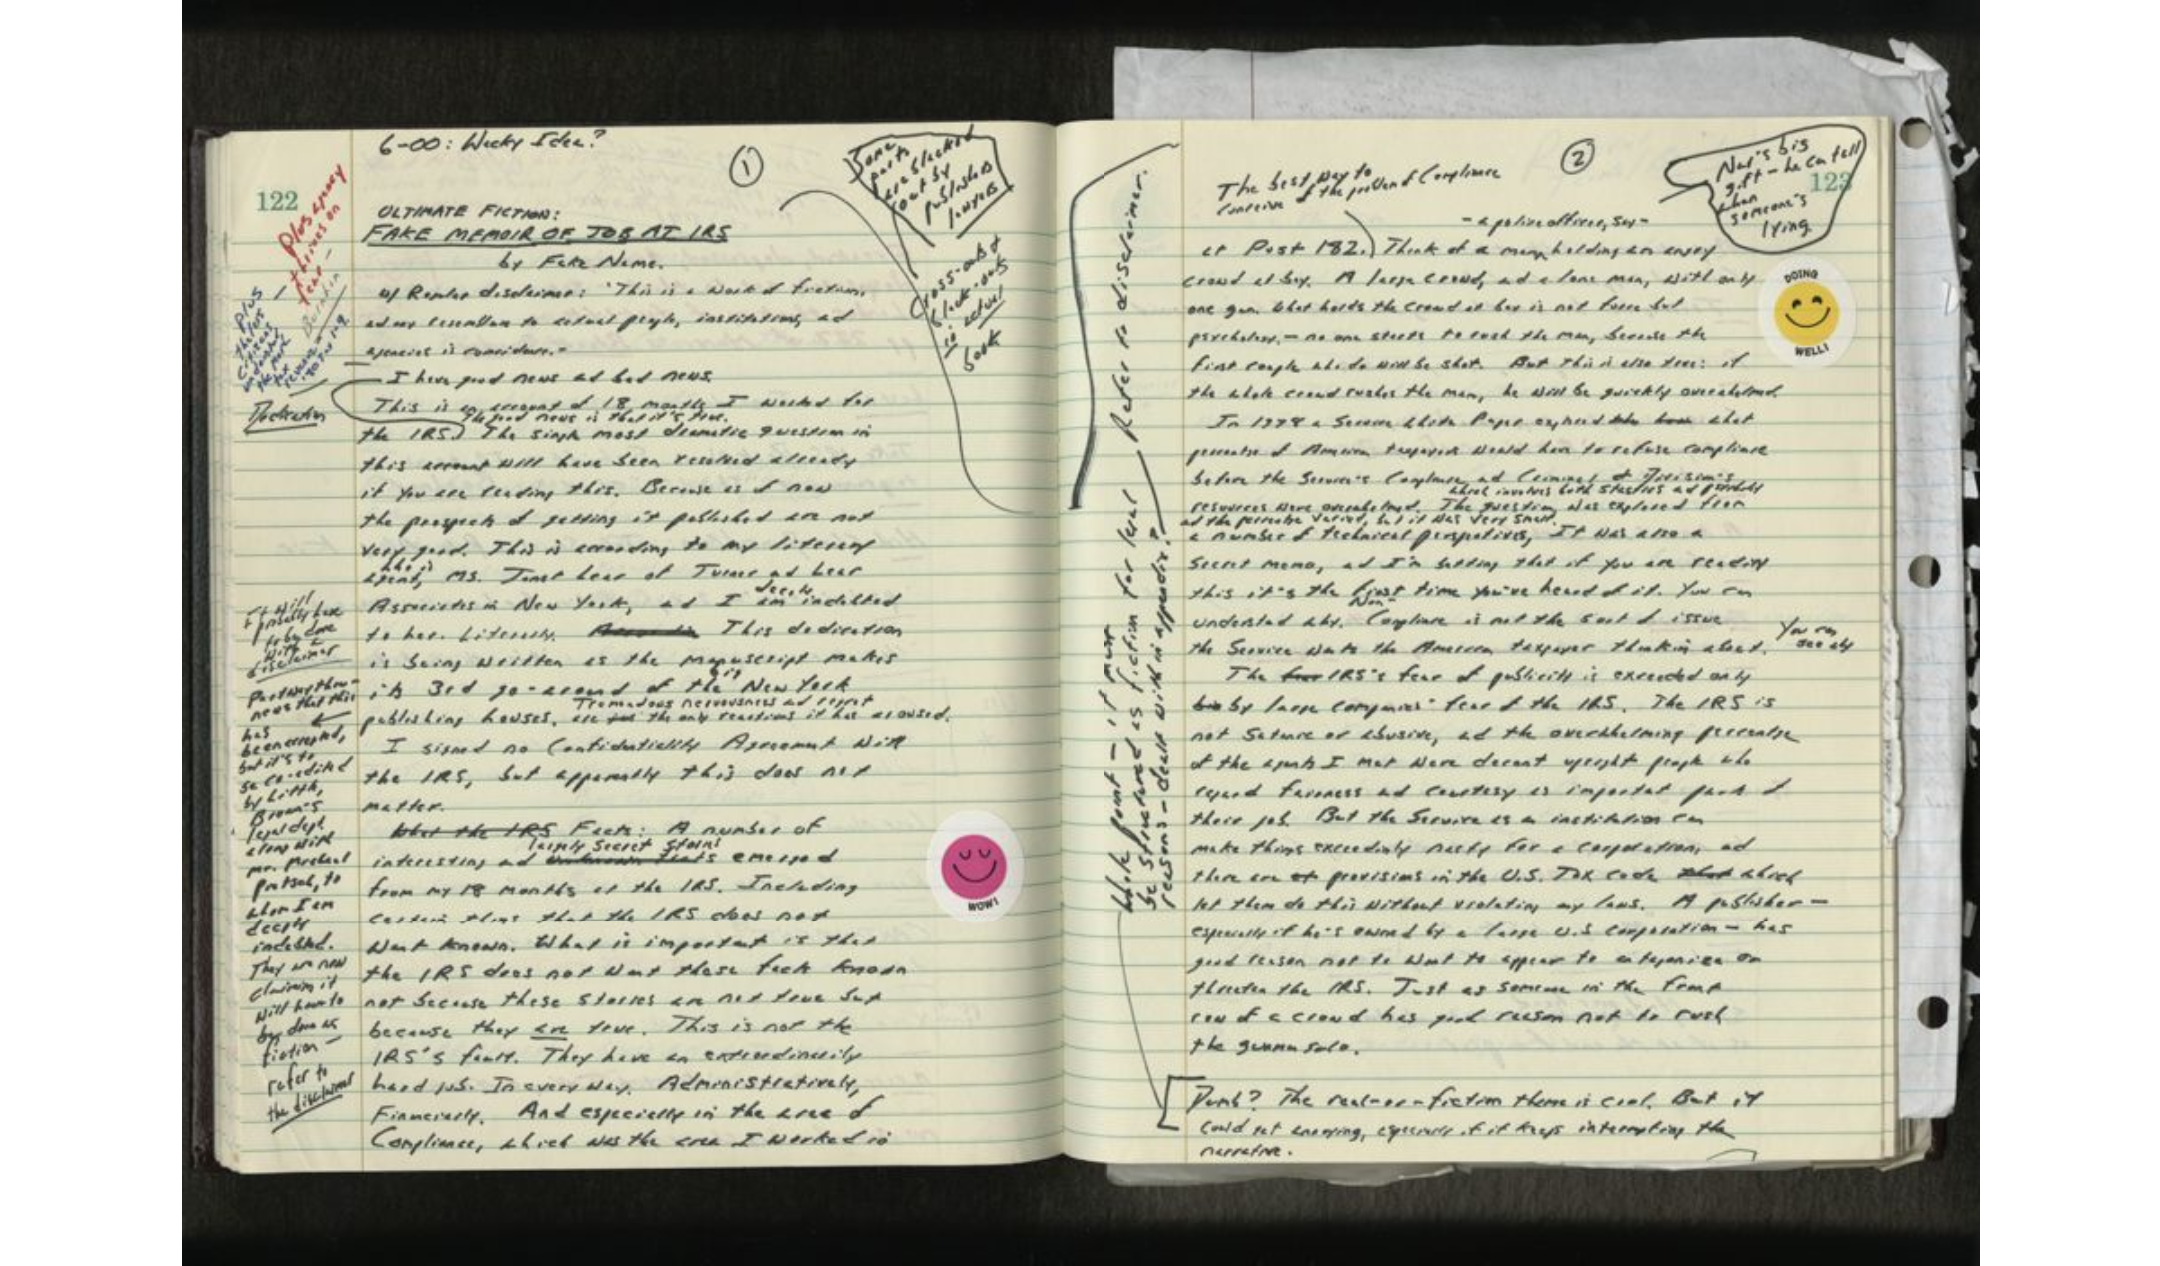 6-00: Wacky Idea?
1
122
ULTIMATE FICTION:
FAKE MEMOIR OF JOB AT IRS
by Fake Name.
w/ Regular disclaimer: "This is a work of fiction,
and any resemblance to actual people, institutions, and
agencies is coincidence."
I have good news and bad news.
This is an account of 18 months I worked for
The good news is that it's true.
the IRS.) The single most dramatic question in
this account will have been resolved already
if you are reading this. Because as of now
the prospects of getting it published are not
very good. This is according to my literary
who is
agent, Ms. Janet Lear of Turner and Lear
deeply
Associates in New York, and I am indebted
to her. Literally. This dedication
is being written as the manuscript makes
its 3rd go-around of the big New York
Tremendous nervousness and regret
publishing houses. are the only reactions it has aroused.
I signed no Confidentiality Agreement with
the IRS, but apparently this does not
matter.
What the IRS Facts: A number of
largely Secret Stories
interesting and emerged
from my 18 months at the IRS. Including
certain things that the IRS does not
want known. What is important is that
the IRS does not want these facts known
not because these stories are not true but
because they are true. This is not the
IRS's fault. They have an extraordinarily
hard job. In every way. Administratively,
Financially. And especially in the area of
Compliance, which was the area I worked in
Plus agency
thrives on
fear –
Plus
Dedication
It will
probably have
to be done
with a
disclaimer
Partway thru –
news that this
has
been accepted,
but it's to
be co-edited
by Little,
Brown's
legal dept
along with
Mr. Michael
Pietsch, to
whom I am
deeply
indebted.
They are now
claiming it
will have to
be done as
fiction –
refer to
the disclaimer
Some
parts
are blacked
out by
publisher's
lawyers
Cross-outs &
black-outs
in actual
book
WOW!
2
123
Nat's big
gift – he can tell
when
someone's
lying.
The best way to
conceive of the problem of Compliance
– a police officer, say –
at Post 182.) Think of a man holding an angry
crowd at bay. A large crowd, and a lone man, with only
one gun. What holds the crowd at bay is not force but
psychology – no one starts to rush the man, because the
first couple who do will be shot. But this is also true: if
the whole crowd rushes the man, he will be quickly overwhelmed.
In 1979 a Service White Paper explored what
percentage of American taxpayers would have to refuse compliance
before the Service's Compliance and Criminal Division's
which involves both statistics and probability
resources were overwhelmed. The question was explored from
and the percentage varied, but it was very small.
a number of technical perspectives, It was also a
secret memo, and I'm betting that if you are reading
this it's the first time you've heard of it. You can
Non-
understand why. Compliance is not the sort of issue
the Service wants the American taxpayer thinking about.
You can
see why
The IRS's fear of publicity is exceeded only
by large companies' fear of the IRS. The IRS is
not Satanic or abusive, and the overwhelming percentage
of the agents I met were decent upright people who
regard fairness and courtesy as important part of
their job. But the Service as an institution can
make things exceedingly nasty for a corporation, and
there are provisions in the U.S. Tax Code which
let them do this without violating any laws. A publisher –
especially if he's owned by a large U.S. corporation – has
good reason not to want to appear to antagonize or
threaten the IRS. Just as someone in the front
row of a crowd has good reason not to rush
the gunman solo.
Dumb? The real-or-fiction theme is cool. But it
could get annoying, especially if it keeps interrupting the
narrative.
Refer to disclaimer.
Whole point – it must
be structured as fiction for legal
reasons – dealt with in appendix?
DOING
WELL!